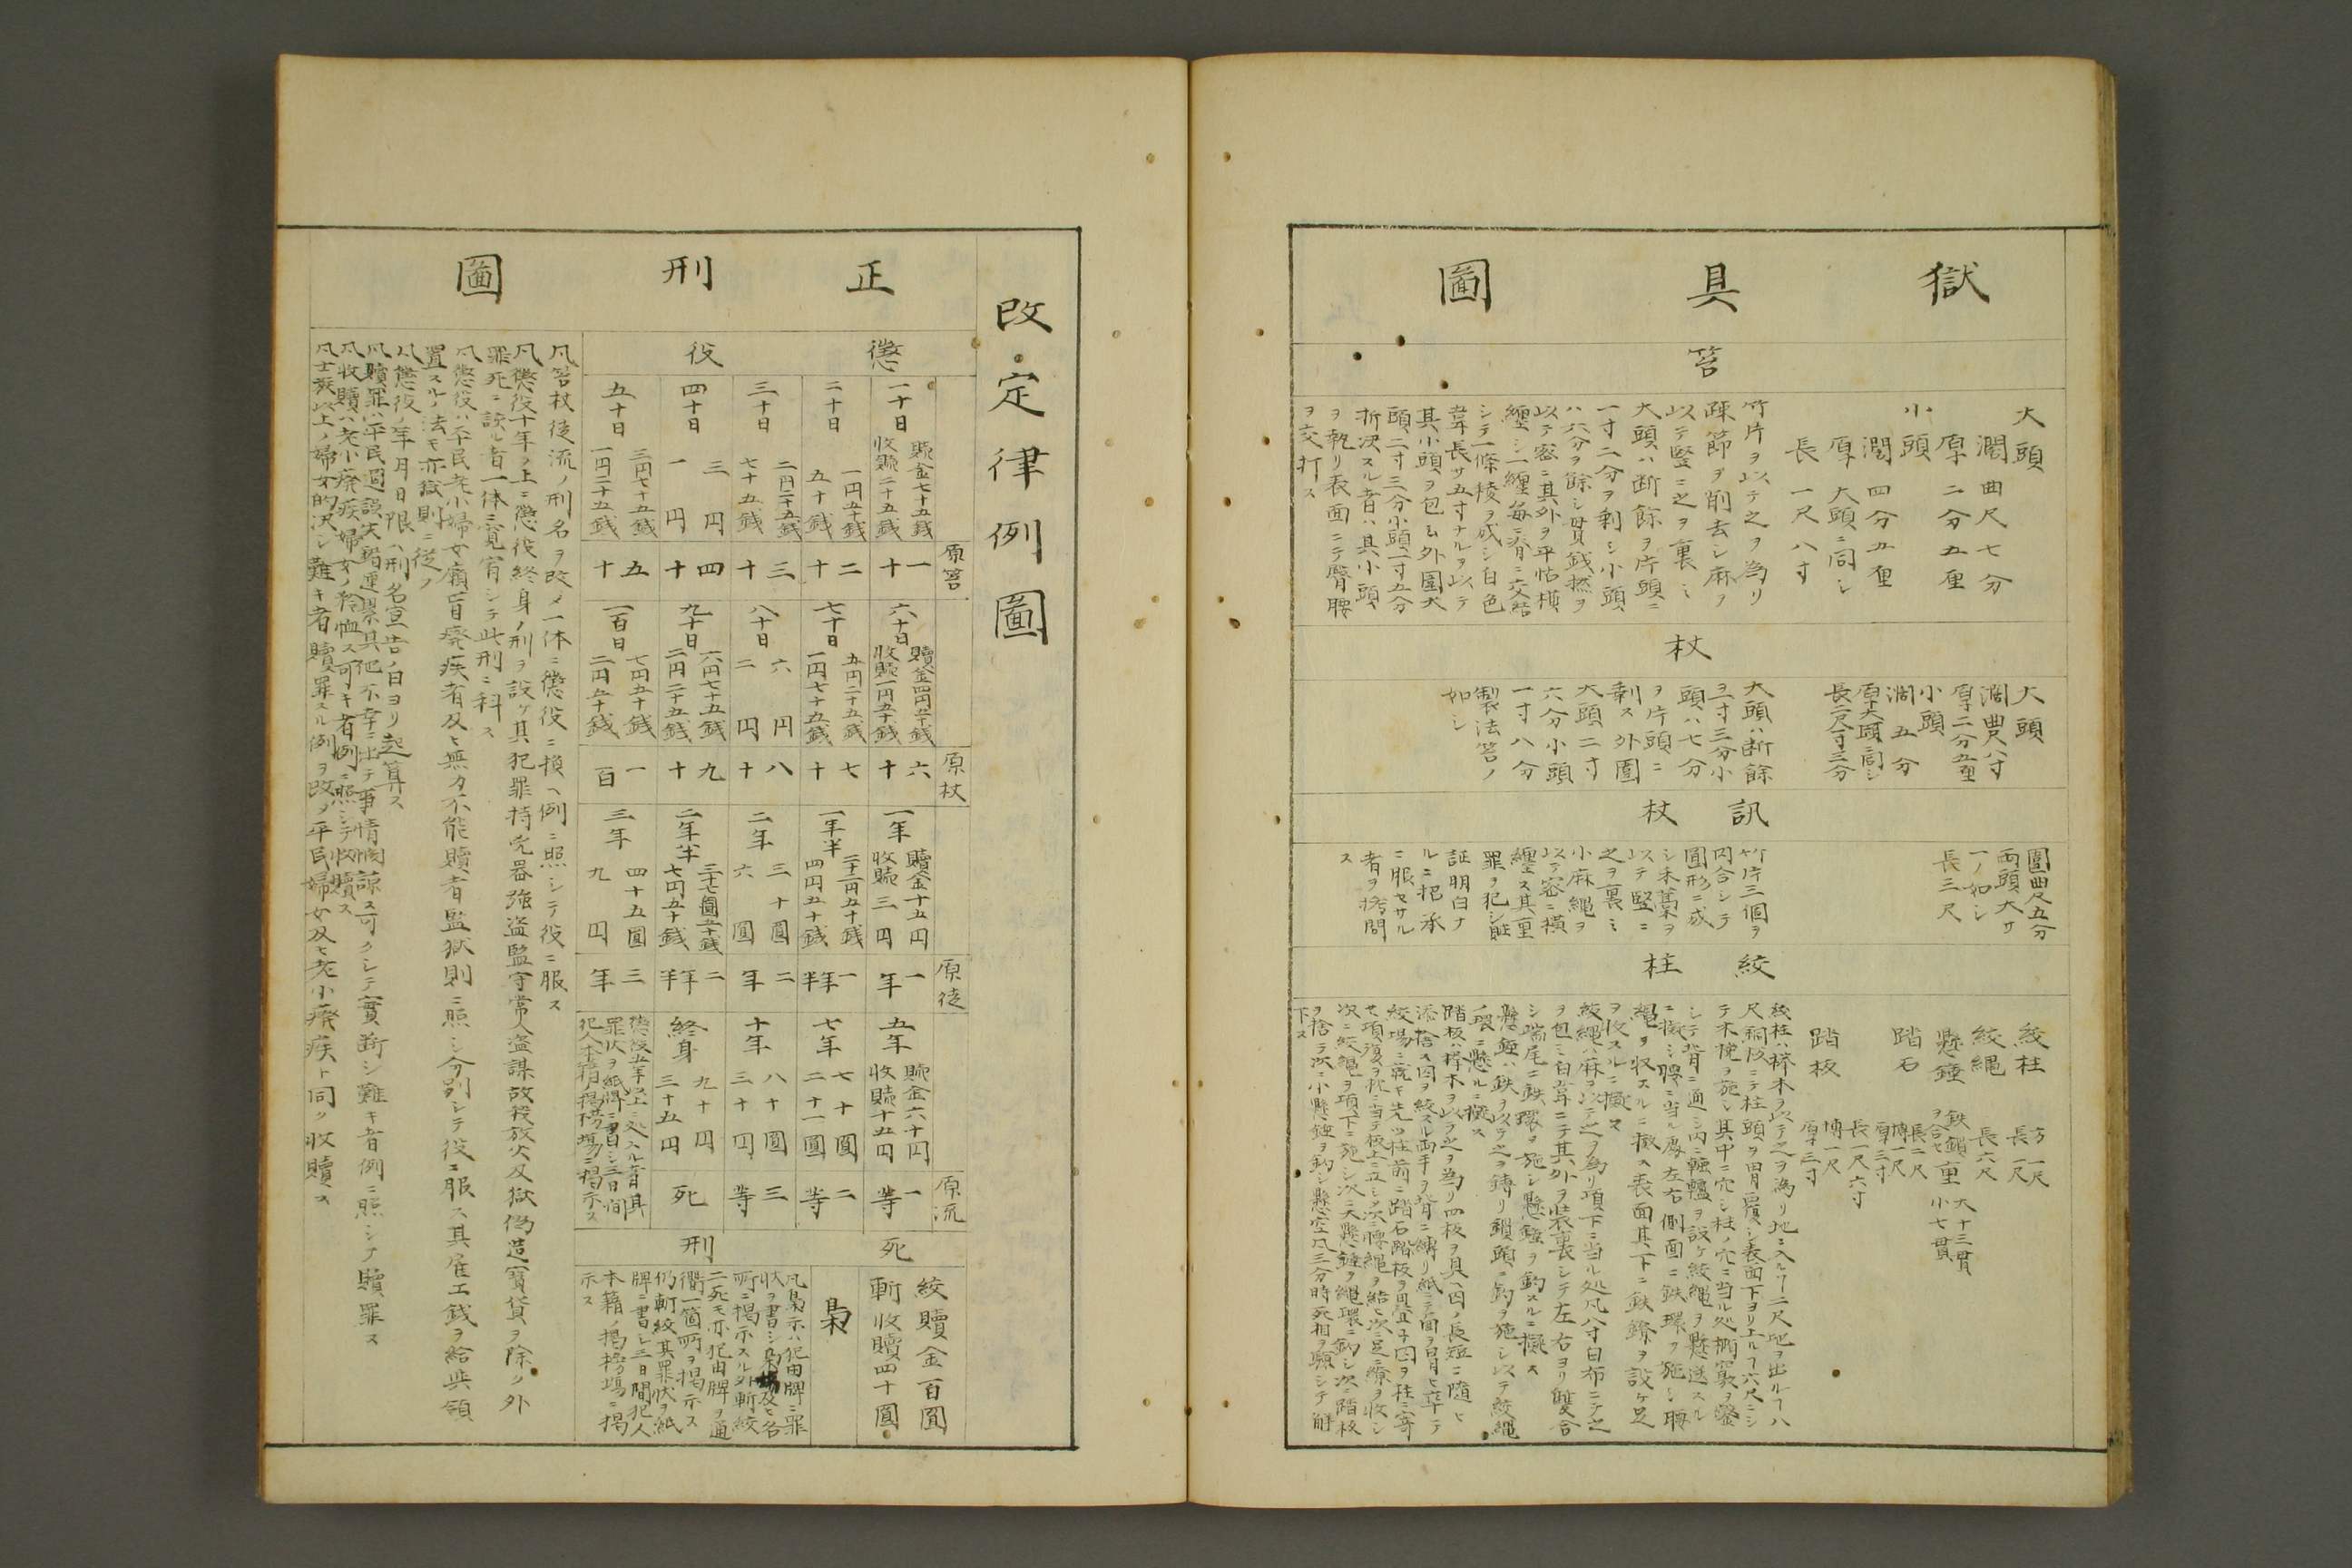 獄具圖
笞
大頭
濶曲尺七分
厚二分五厘
小頭
濶四分五厘
厚大頭ニ同シ
長一尺八寸
竹片ヲ以テ之ヲ為リ
疎節ヲ削去シ麻ヲ
以テ竪ニ之ヲ裏ミ
大頭ハ断餘ヲ片頭ニ
一寸二分ヲ剰シ小頭
ハ六分ヲ餘シ貫銭撚ヲ
以テ密ニ其外ヲ平帖横
纏シ一纏毎ニ脊ニ交結
シテ一條稜ヲ成シ白色
韋長サ五寸ナルヲ以テ
其小頭ヲ包ム外圍大
頭二寸三分小頭一寸五分
折决スル者ハ其小頭
ヲ執リ表面ニテ臀腰
ヲ交打ス
杖
大頭
濶曲尺八寸
厚二分五厘
小頭
濶五分
厚大頭ニ同シ
長二尺一寸三分
大頭ハ断餘
ヲ一寸三分小
頭ハ七分
ヲ片頭ニ
剰ス外圍
大頭二寸
六分小頭
一寸八分
製法笞ノ
如シ
訊杖
圍曲尺五分
両頭大サ
一ノ如シ
長三尺
竹片三個ヲ
円合シテ
圓形ニ成
シ木藁ヲ
以テ竪ニ
之ヲ裏ミ
小麻縄ヲ
以テ密ニ横
纏ス其重
罪ヲ犯シ賍
証明白ナ
ルニ招承
ニ服セサル
者ヲ拷問
ス
絞柱
絞柱 方一尺 長一尺
絞縄 長六尺
懸錘 鉄鎖ヲ合セ重大十三貫 小七貫
踏石 長二尺 博一尺 厚三寸
踏板 長一尺六寸 博一尺 厚一寸三寸
絞柱ハ欅木ヲ以テ之ヲ為リ地ニ入ルヿ二尺地ヲ出ルヿ八
尺銅板ニテ柱頭ヲ冒覆シ表面下ヨリ上ルヿ六尺ニシ
テ木枕ヲ施シ其中ニ穴シ柱ノ穴ニ当ル処橢竅ヲ鑿
シテ背ニ通シ内ニ轆轤ヲ設ケ絞縄ヲ懸送スル
ニ擬シ膊ニ当ル處左右側面ニ鉄環ヲ施シ膊
縄ヲ収スルニ擬ス表面其下ニ鉄鐐ヲ設ケ足
ヲ收スルニ擬ス
絞縄ハ麻ヲ以テ之ヲ為リ項下ニ当ル処凡八寸白布ニテ之
ヲ包ミ白韋ニテ其外ヲ装裹シテ左右ヨリ雙合
シ端尾ニ鉄環ヲ施シ懸錘ヲ鈎スルニ擬ス
懸錘ハ鉄ヲ以テ之ヲ鋳リ鎖頭ニ鈎ヲ施シ以テ絞縄
ノ環ニ懸ルニ擬ス
踏板ハ欅木ヲ以テ之ヲ為リ四板ヲ具ヘ囚ノ長短ニ随ヒ
添捨ス囚ヲ絞スル両手ヲ背ニ縛リ紙ニテ面ヲ冒ヒ牽テ
絞場ニ就キ先ツ柱前ニ踏石踏板ヲ畳子囚ヲ柱ニ寄
セ項頚ヲ枕ニ当テ板上ニ立シメ次ニ膊縄ヲ給ヒ次ニ足ニ鐐ヲ收シ
次ニ絞縄ヲ項下ニ施シ次ニ大懸錘ヲ縄環ニ鈎シ次ニ踏板
ヲ捨テ次ニ小懸錘ヲ鈎シ懸空凡三分時死相ヲ驗シテ解
下ス
改定律例圖
正刑圖
懲役
一十日 贖金七十五銭 收贖二十五銭
二十日 一円五十銭 五十銭
三十日 二円二十五銭 七十五銭
四十日 三円 一円
五十日 三円七十五銭 一円二十五銭
原笞
一十
二十
三十
四十
五十
六十日 贖金四円五十銭 收贖一円五十銭
七十日 五円二十五銭 一円七十五銭
八十日 六円 二円
九十日 六円七十五銭 二円二十五銭
一百日 七円五十銭 二円五十銭
原杖
六十
七十
八十
九十
一百
一年 贖金十五円 收贖三円
一年半 二十二円五十銭 四円五十銭
二年 三十圓 六圓
二年半 三十七圓五十銭 七円五十銭
三年 四十五圓 九円
原徒
一年
一年半
二年
二年半
三年
五年 贖金六十円 收贖十五円
七年 七十圓 二十一圓
十年 八十圓 三十円
終身 九十円 三十五円
懲役五年以上ニ処スル者其
罪状ヲ紙牌ニ書シ三日間
犯人本籍ノ掲榜場ニ掲示ス
原流
一等
二等
三等
死
死刑
絞贖金百圓
斬收贖四十圓
梟
凡梟示ハ犯由牌ニ罪
状ヲ書シ梟場及ヒ各
所ニ掲示スル外斬絞
二死モ亦犯由牌ヲ通
衢一箇所ヲ掲示ス
仍斬絞其罪状ヲ紙
牌ニ書シ三日間犯人
本籍ノ掲榜場ニ掲
示ス
凡笞杖徒流ノ刑名ヲ改メ一体ニ懲役ニ換ヘ例ニ照シテ役ニ服ス
凡懲役十年ヲ上ニ懲役終身ノ刑ヲ設ケ其犯罪持兇器強盗監守常人盗謀故殺放火及獄偽造寳貨ヲ除ク外
罪死ニ該ル者一体ニ寛宥シテ此刑ニ科ス
凡懲役ハ平民老小婦女癈盲癈疾者及ヒ無力不能贖者監獄則ニ照シ分別シテ役ニ服ス其雇工銭ヲ給與領
置スルノ法モ亦獄則ニ従フ
凡懲役ノ年月日限ハ刑名宣告ノ日ヨリ起算ス
凡贖罪ハ平民過誤失錯連累其他不幸ニ出テ事情憫諒ス可クシテ實断シ難キ者例ニ照シテ贖罪ス
凡收贖ハ老小癈疾婦女ノ矜恤ス可キ者例ニ照シテ收贖ス
凡士族以上ノ婦女的决シ難キ者贖罪スル例ヲ改メ平民婦女及ヒ老小癈疾ト同ク收贖ス